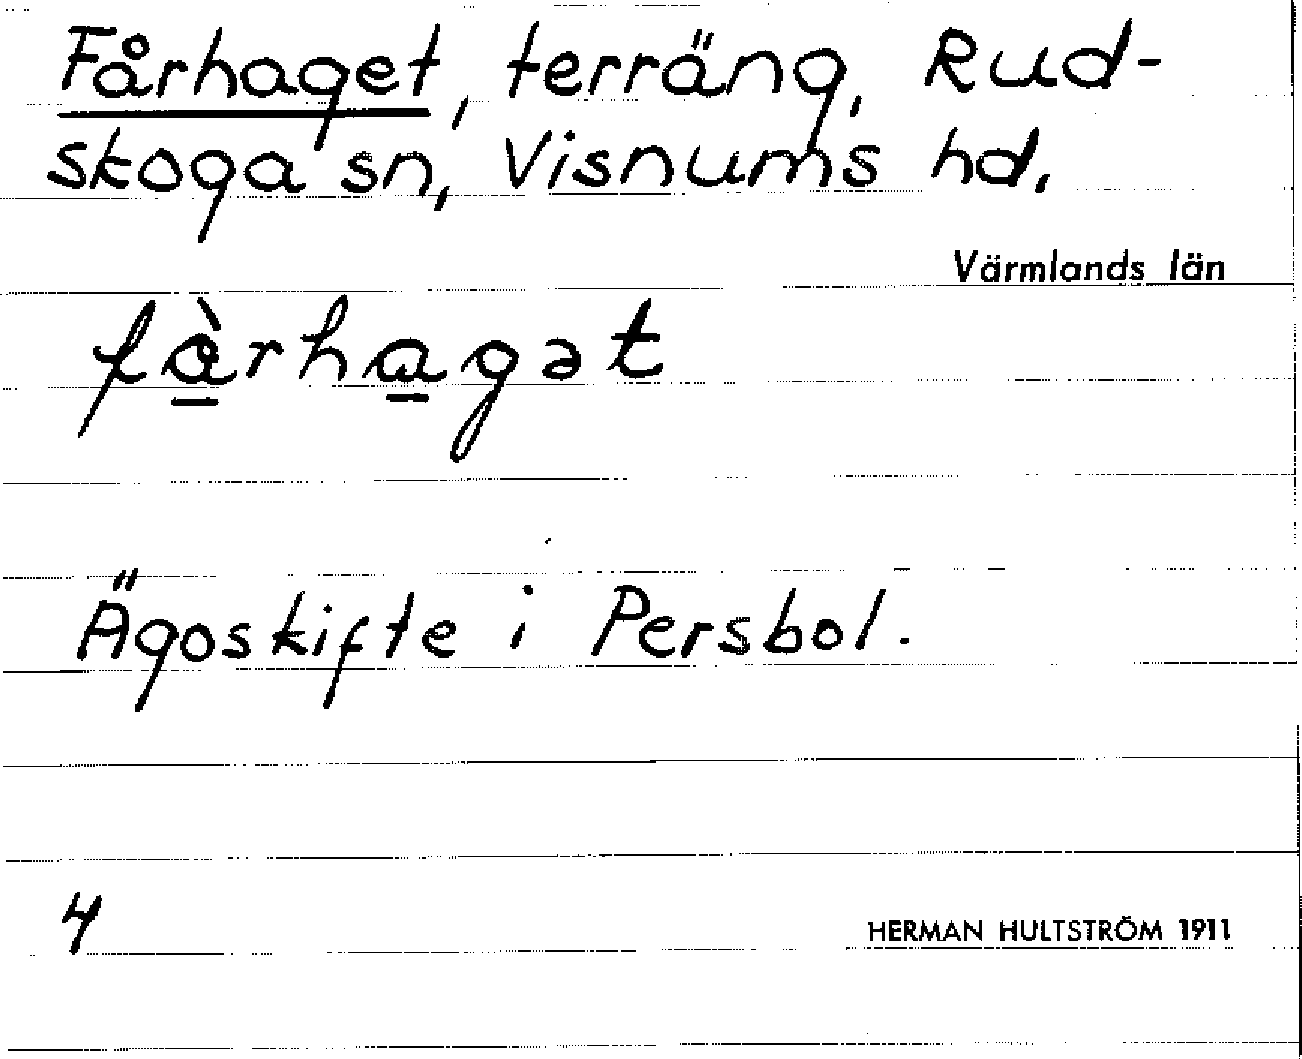 Fårhaget, terräng, Rud-
skoga sn, Visnums hd,
Värmlands län
fà̲rha̲gət
Ägoskifte i Persbol.
4
HERMAN HULTSTRÖM 1911